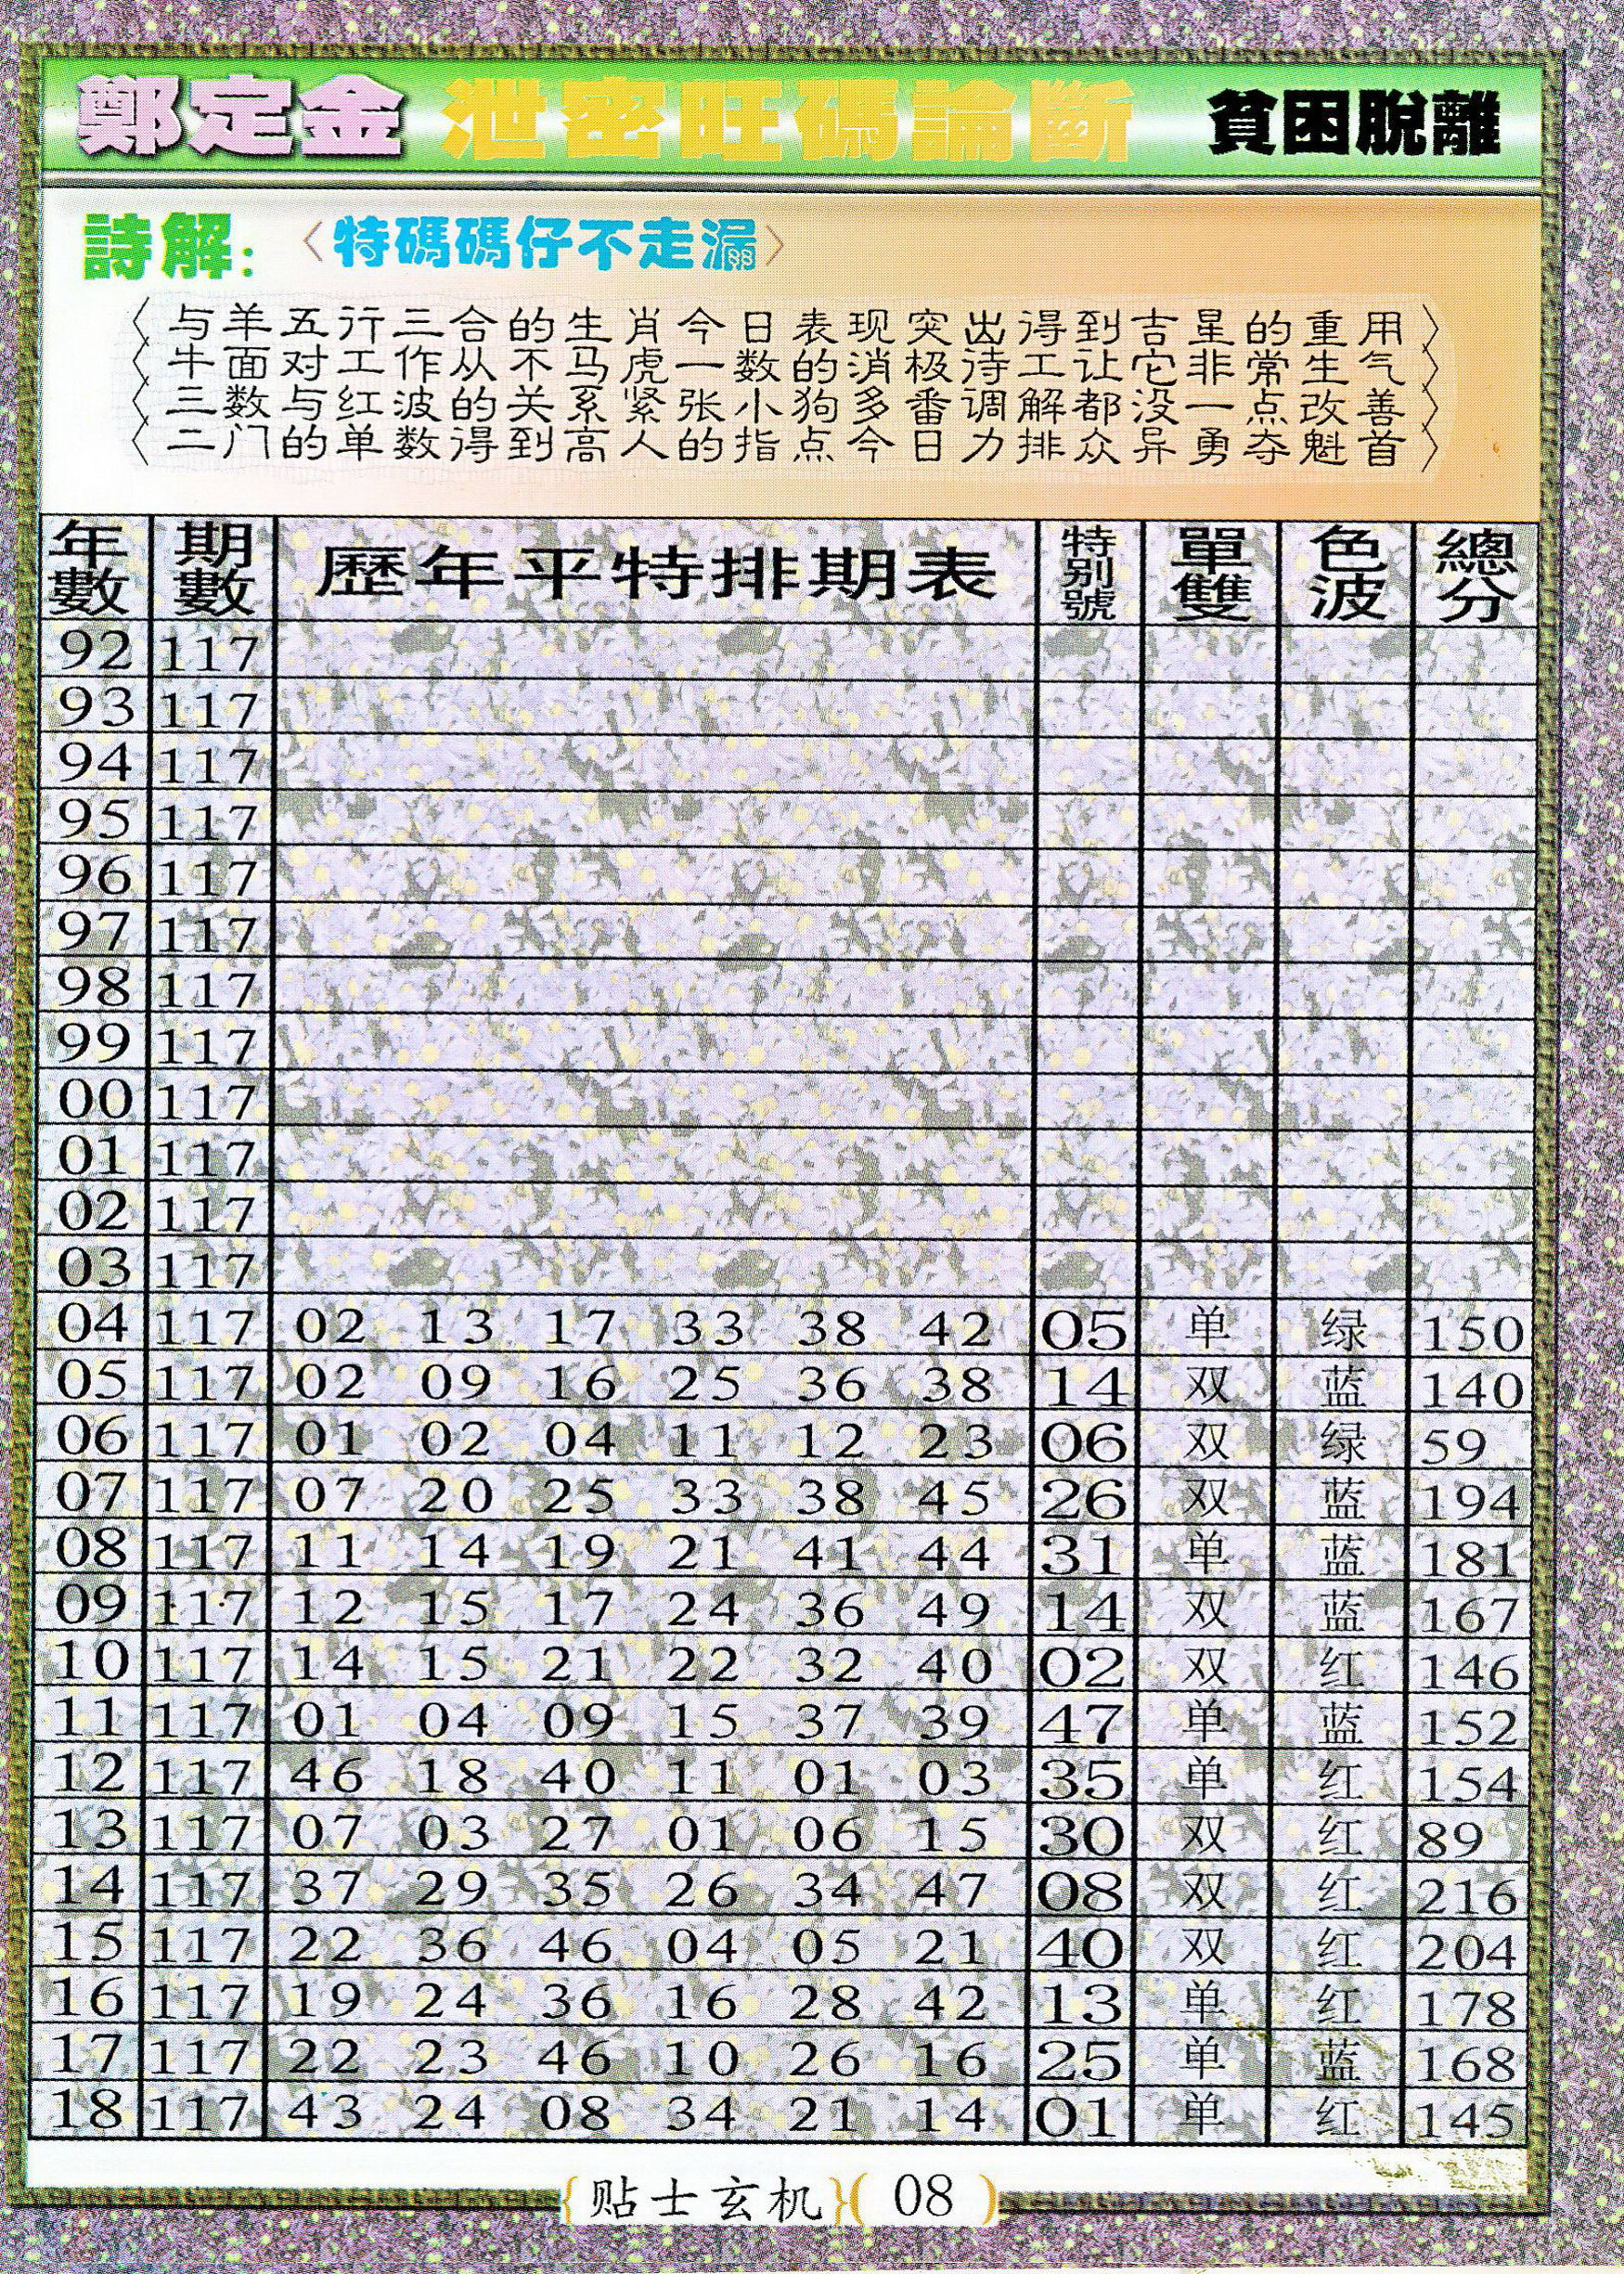 鄭定金 泄密旺碼論斷 貧困脫離
詩解：〈特碼碼仔不走漏〉
〈与羊五行三合的生肖今日表现突出得到吉星的重用〉
〈牛面对工作从不马虎一数的消极待工让它非常生气〉
〈三数与红波的关系紧张小狗多番调解都没一点改善〉
〈二门的单数得到高人的指点今日力排众异勇夺魁首〉
年數 期數 歷年平特排期表 特别號 單雙 色波 總分
92 117
93 117
94 117
95 117
96 117
97 117
98 117
99 117
00 117
01 117
02 117
03 117
04 117 02 13 17 33 38 42 05 单 绿 150
05 117 02 09 16 25 36 38 14 双 蓝 140
06 117 01 02 04 11 12 23 06 双 绿 59
07 117 07 20 25 33 38 45 26 双 蓝 194
08 117 11 14 19 21 41 44 31 单 蓝 181
09 117 12 15 17 24 36 49 14 双 蓝 167
10 117 14 15 21 22 32 40 02 双 红 146
11 117 01 04 09 15 37 39 47 单 蓝 152
12 117 46 18 40 11 01 03 35 单 红 154
13 117 07 03 27 01 06 15 30 双 红 89
14 117 37 29 35 26 34 47 08 双 红 216
15 117 22 36 46 04 05 21 40 双 红 204
16 117 19 24 36 16 28 42 13 单 红 178
17 117 22 23 46 10 26 16 25 单 蓝 168
18 117 43 24 08 34 21 14 01 单 红 145
{贴士玄机}( 08 )